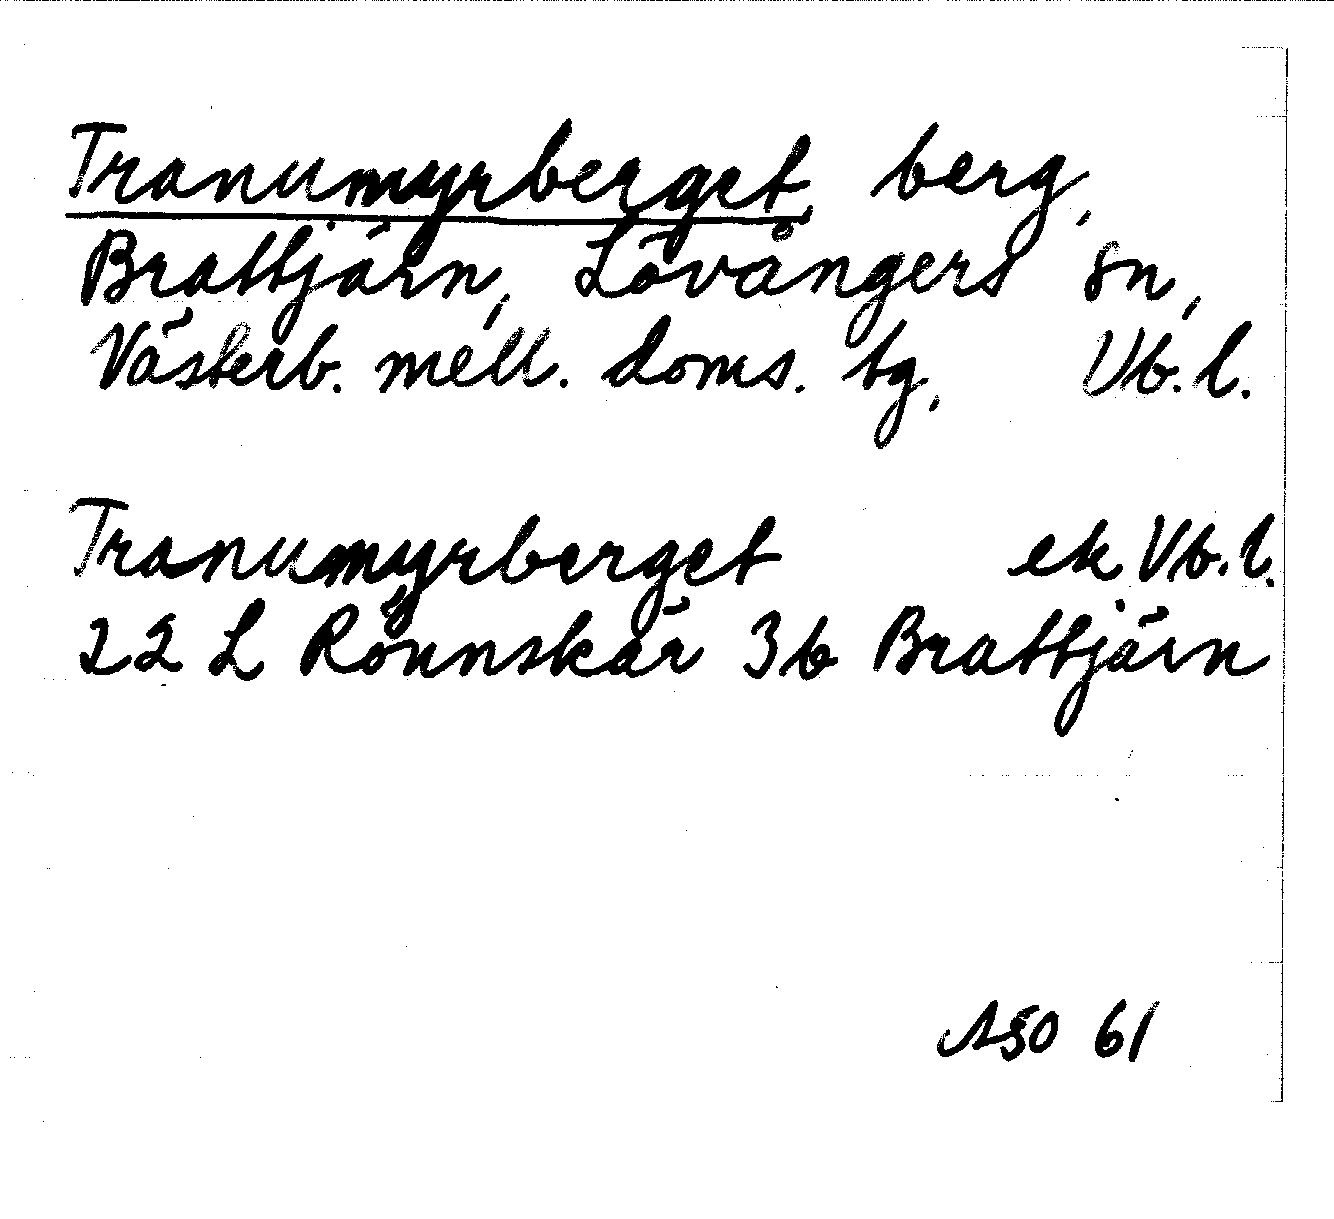 Tranumyrberget, berg,
Brattjärn, Lövångers sn,
Västerb. mell. doms. tg, Vb. l.
Tranumyrberget ek Vb. l.
22 L Rönnskär 3b Brattjärn
ASO 61